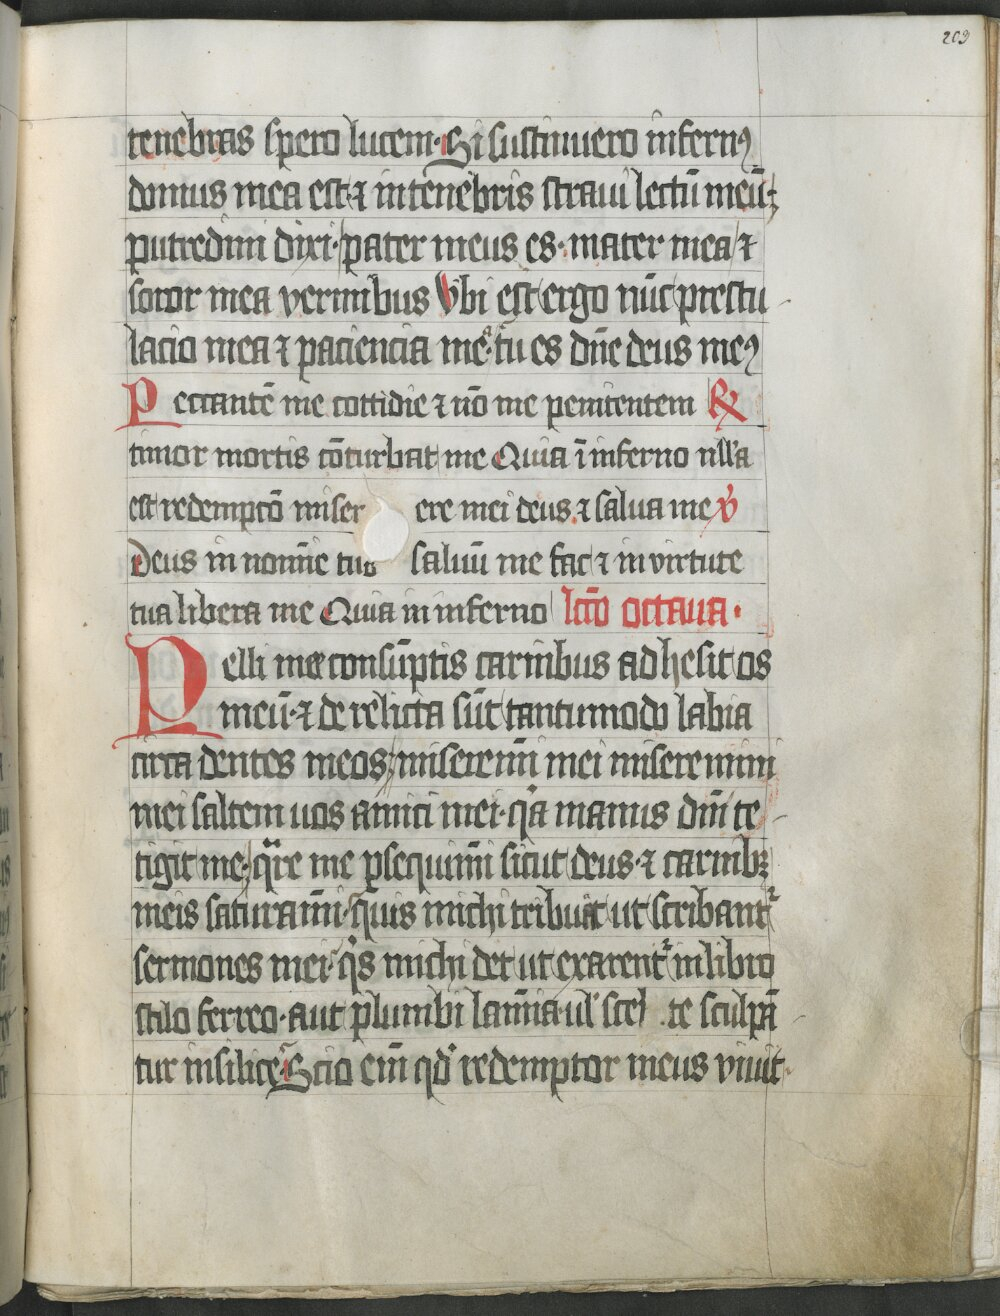 209
tenebras spero lucem· Si sustinuero infernꝰ
domus mea est· ⁊ in tenebris straui lectū meū·
putredini dixi· pater meus es· mater mea ⁊
soror mea vermibus Vbi est ergo nūc prestu
lacio mea ⁊ paciencia meᵃ· tu es dn̄e deus meꝰ
Peccantē me cottidie ⁊ nō me penitentem ℟
timor mortis cōturbat me Quia ī inferno nll'a
est redemptō miserere mei deus ⁊ salua me ℣
Deus in nomīe tuo saluū me fac ⁊ in virtute
tua libera me Quia in inferno lcto octaua·
Pelli mee consūptis carnibus adhesit os
meū· ⁊ derelicta sūt tantumodo labia
circa dentes meos· miseremī mei miseremini
mei saltem uos amici mei· qͣa manus dn̄i te
tigit me· qͣre me ꝑsequimī sicut deus· ⁊ carnibꝫ
meis saturamī· quis michi tribuat ut scribant᷑
sermones mei· qⁱs michi det ut exarent᷑ in libro
stilo ferreo· aut plumbi lamīa ul' celte sculpā
tur in silice· Scio em̄ qd' redemptor meus viuit·